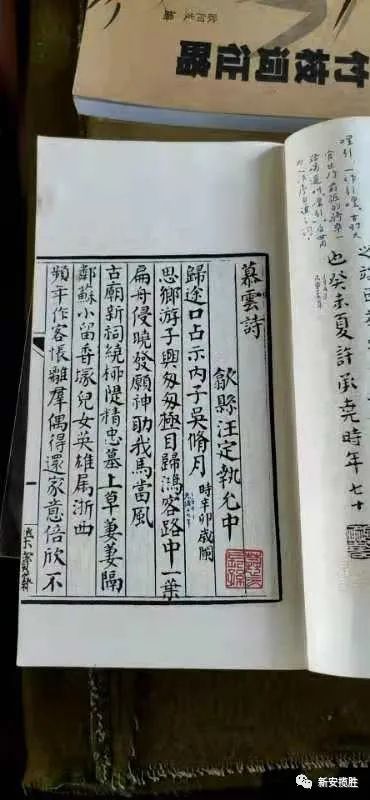 竹枝词征略
也癸未夏許承堯時年七十
慕雲詩
歙縣汪定執允中
歸途口占示内子吳脩月 時辛卯歲闌
思鄉游子興匆匆極目歸鴻客路中一葉
扁舟侵曉發願神助我馬當風
古廟新祠繞柳隄精忠墓上草萋萋隔
鄰蘇小留香塚兒女英雄屬浙西
頻年作客悵離羣偶得還家意倍欣不
新安揽胜